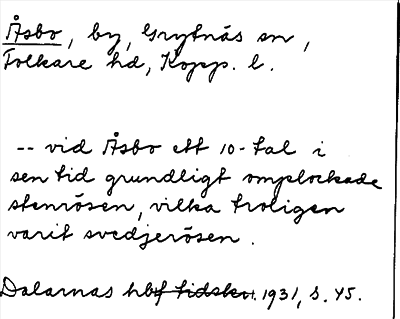 Åsbo, by, Grytnäs sn,
Folkare hd, Kopp. l.
-- vid Åsbo ett 10-tal i
sen tid grundligt omplockade
stenrösen, vilka troligen
varit svedjerösen.
Dalarnas hbf tidskr. 1931, s. 45.